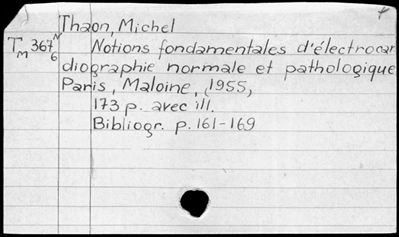 Thaon, Michel
Tm 367 N 6 Notions fondamentales d'électrocar
diographie normale et pathologique
Paris, Maloine, (1955,
173 p. avec ill.
Bibliogr. p. 161-169